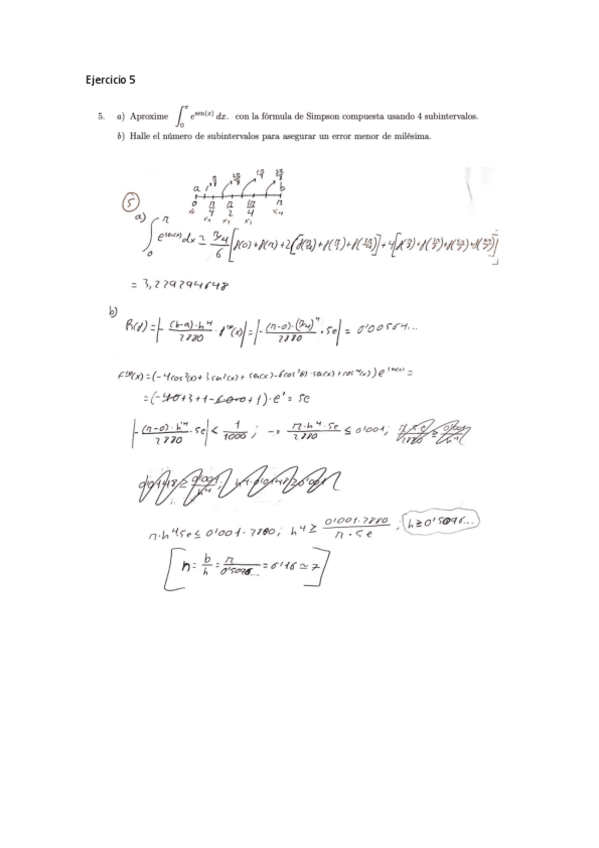 Ejercicio 5
5. a) Aproxime ∫₀^π e^{sen(x)} dx. con la fórmula de Simpson compuesta usando 4 subintervalos.
b) Halle el número de subintervalos para asegurar un error menor de milésima.
a b
0 π/4 π/2 3π/4 π
⑤
a) ∫₀^π e^{sen(x)} dx ≃ (π/4)/6 [f(0)+f(π)+2(f(π/4)+f(π/2)+f(3π/4))+4[f(π/8)+f(3π/8)+f(5π/8)+f(7π/8)]]
= 3,229294648
b)
R(f)=|-(b-a)·h⁴/2880 · f^{IV}(x)|=|-(π-0)·(π/4)⁴/2880 · 5e| = 0'00564...
= · e' = 5e
|-(π-0)·h⁴/2880 · 5e| < 1/1000 ; → π·h⁴·5e/2880 ≤ 0'001;
π·h⁴·5e ≤ 0'001·2880; h⁴ ≥ 0'001·2880/π·5e ; h ≥ 0'5096...
[n = b/h = π/0'5096... = 6'16 ≃ 7]